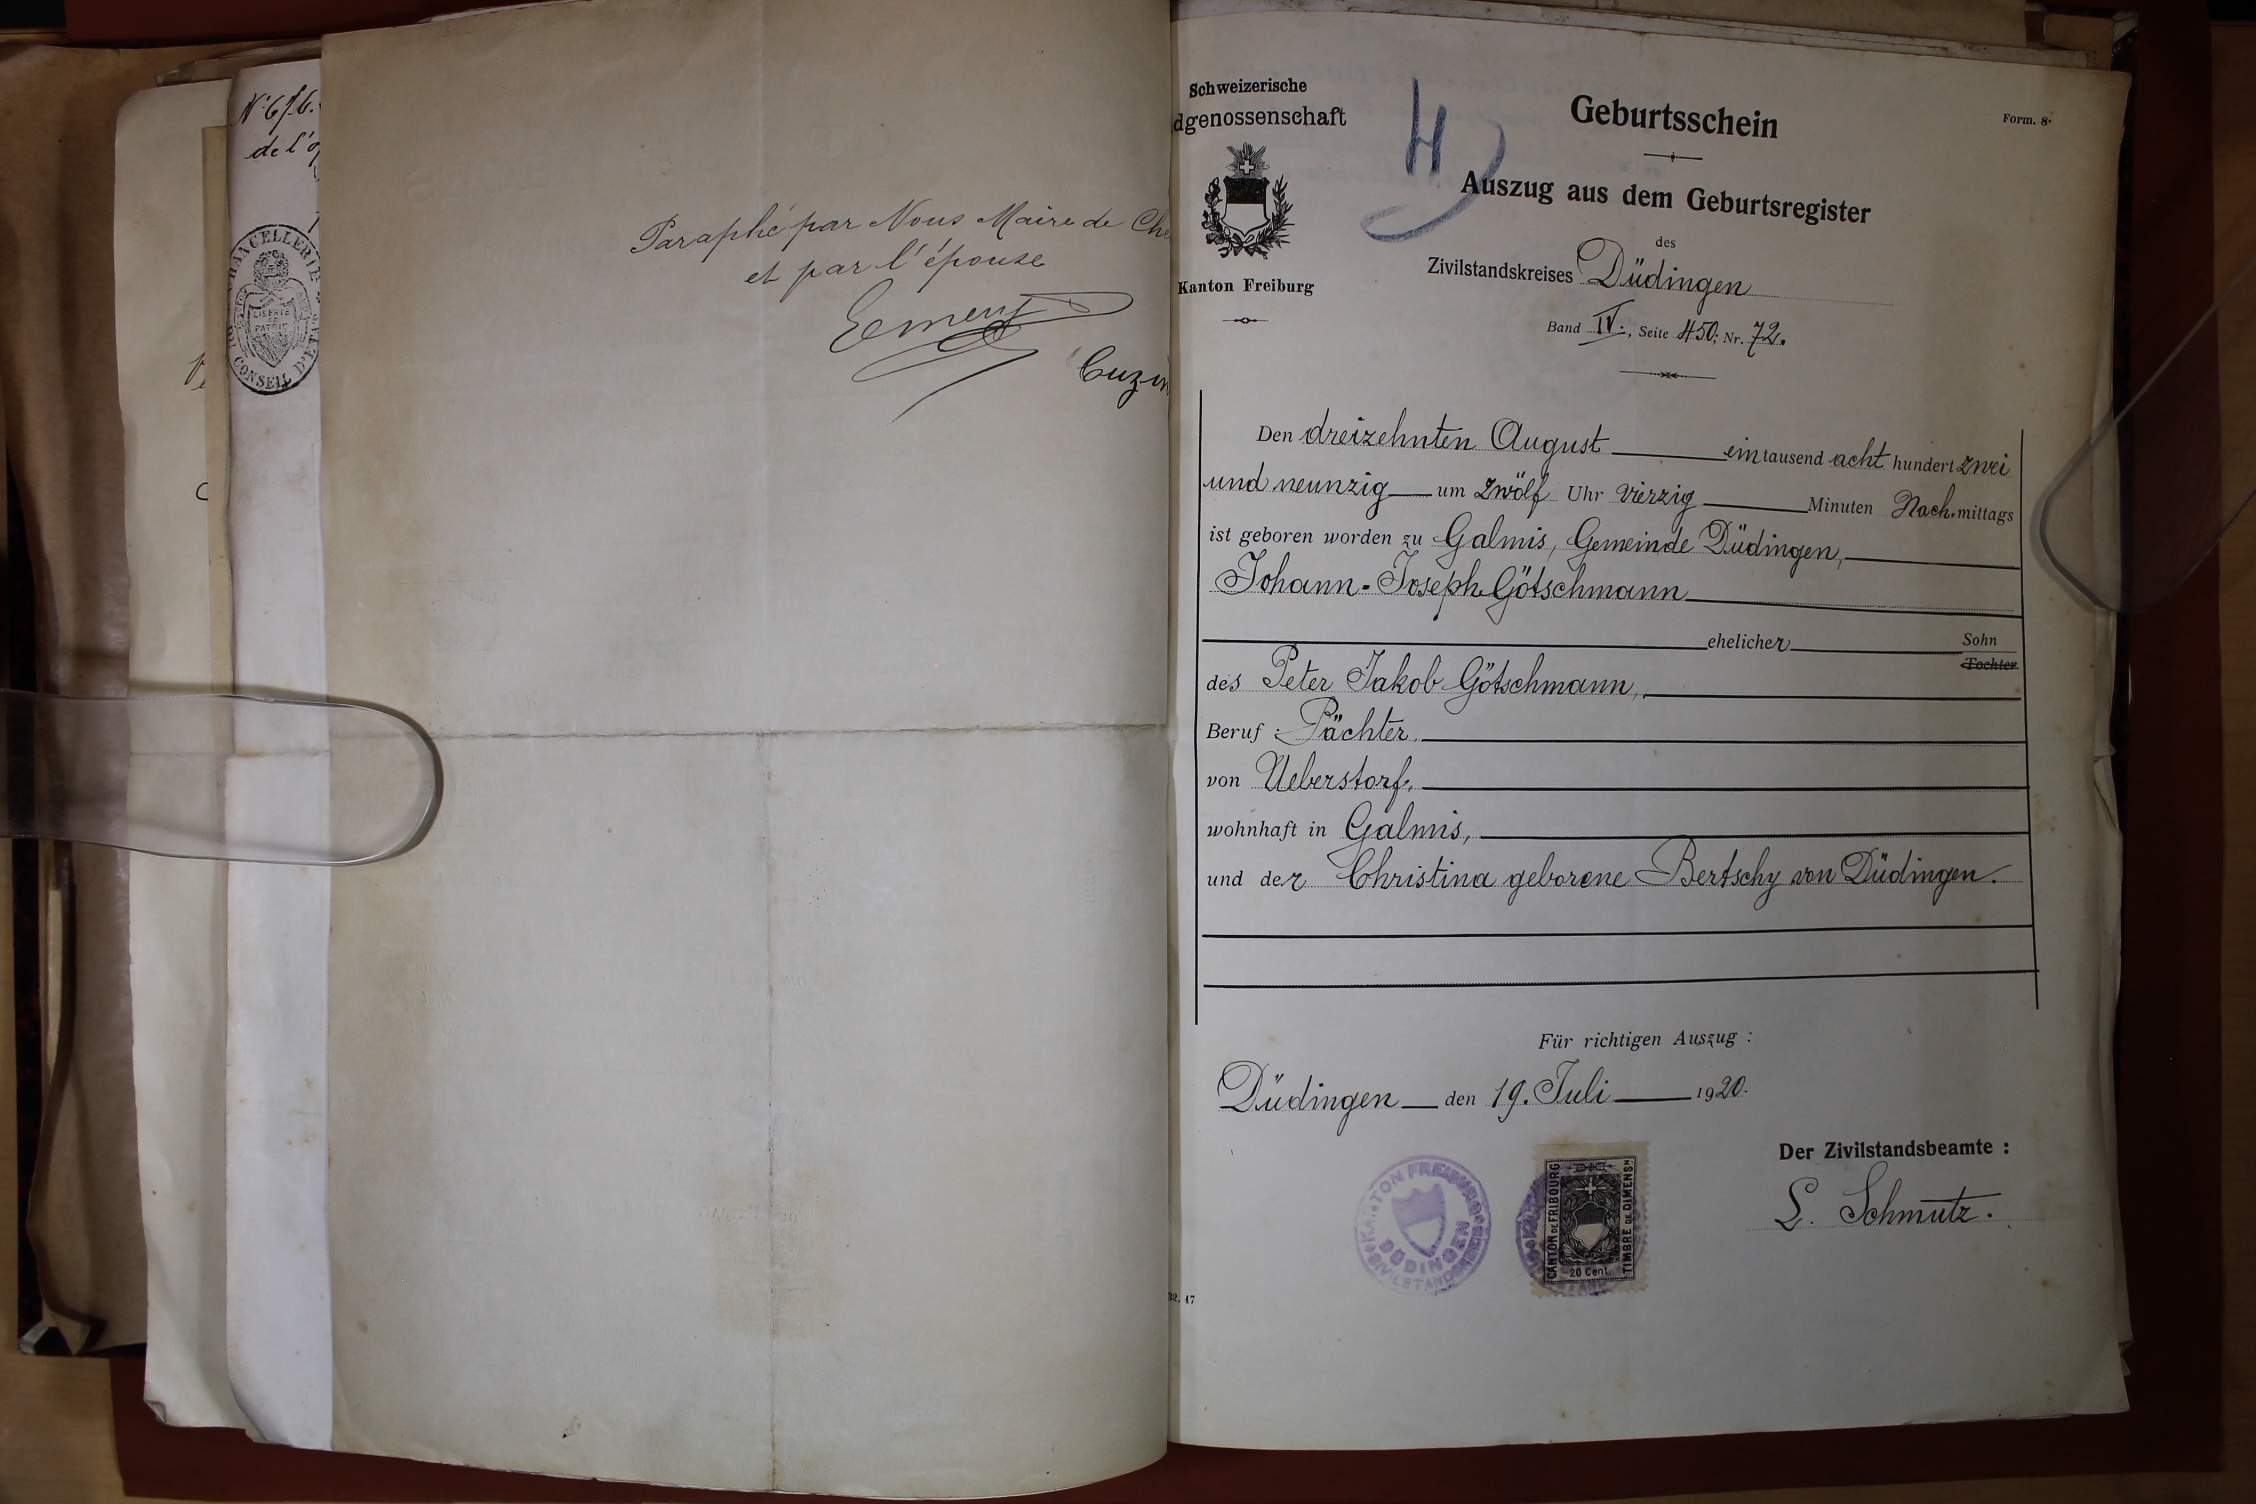 N° 676.
de l'
CHANCELLERIE
LIBERTÉ
ET
PATRIE
CONSEIL D'ETAT
Paraphé par Nous Maire de Che
et par l'épouse
Cuzin
Schweizerische
dgenossenschaft
Kanton Freiburg
4
Geburtsschein
Form. 8.
Auszug aus dem Geburtsregister
des
Zivilstandskreises Düdingen
Band IV., Seite 450; Nr. 72.
Den dreizehnten August eintausend acht hundert zwei
und neunzig um zwölf Uhr vierzig Minuten Nachmittags
ist geboren worden zu Galmis, Gemeinde Düdingen,
Johann-Joseph Götschmann
ehelicher Sohn
Tochter
des Peter Jakob Götschmann,
Beruf : Pächter,
von Ueberstorf,
wohnhaft in Galmis,
und der Christina geborene Bertschy von Düdingen.
Für richtigen Auszug :
Düdingen den 19. Juli 1920.
Der Zivilstandsbeamte :
L. Schmutz.
KANTON FREIBURG
DÜDINGEN
CANTON DE FRIBOURG
TIMBRE DE DIMENSN
20 Cent.
32. 17